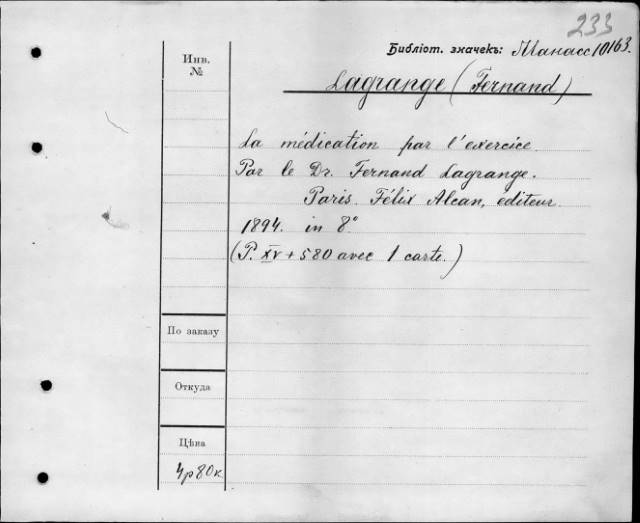 233
Библіот. значекъ: Манасс 10163.
Инв.
№
Lagrange (Fernand)
La médication par l'exercice.
Par le Dr. Fernand Lagrange.
Paris. Félix Alcan, éditeur
1894. in 8°
(P. XV + 580 avec 1 carte.)
По заказу
Откуда
Цѣна
4р 80к